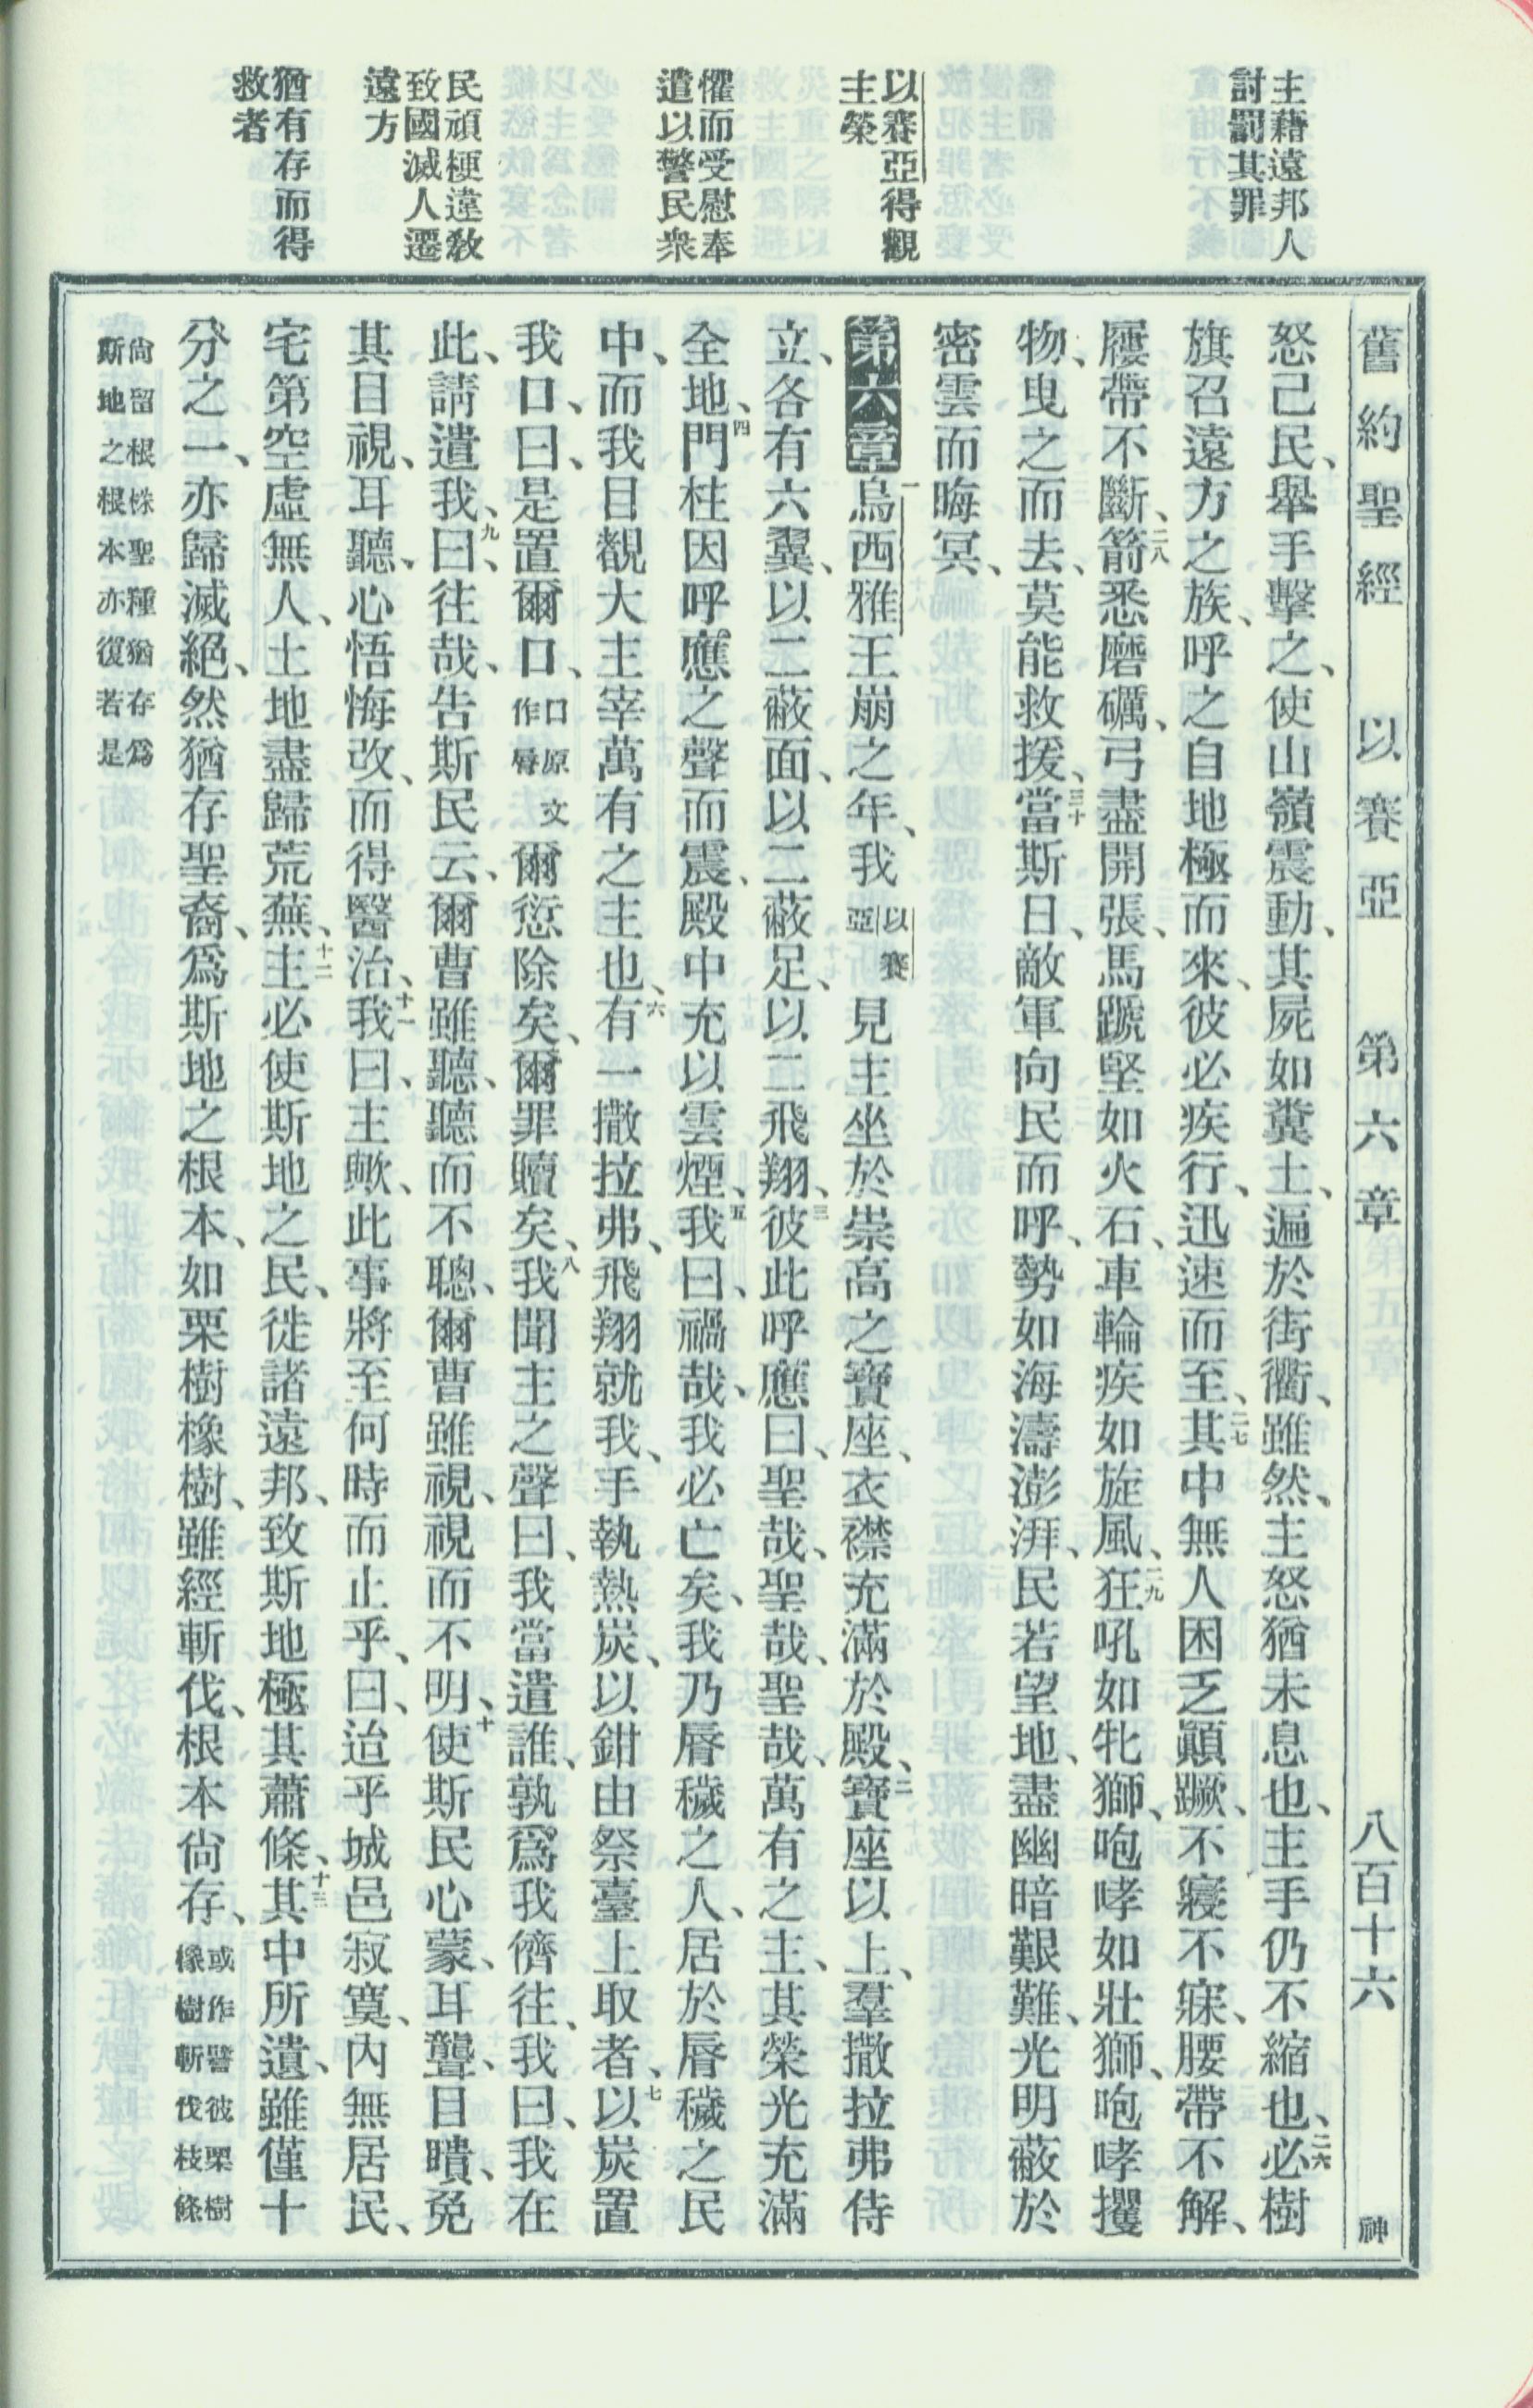 主藉遠邦人
討罰其罪
以賽亞得觀
主榮
懼而受慰奉
遣以警民衆
民頑梗違敎
致國滅人遷
遠方
猶有存而得
救者
舊約聖經 以賽亞 第六章 八百十六 神
怒己民、舉手擊之、使山嶺震動、其屍如糞土、遍於街衢、雖然、主怒猶未息也、主手仍不縮也、二六必樹
旗召遠方之族、呼之自地極而來、彼必疾行、迅速而至、二七其中無人困乏顚蹶、不寢不寐、腰帶不解、
屨帶不斷、二八箭悉磨礪、弓盡開張、馬蹏堅如火石、車輪疾如旋風、二九狂吼如牝獅、咆哮如壯獅、咆哮攫
物、曳之而去、莫能救援、三十當斯日、敵軍向民而呼、勢如海濤澎湃、民若望地、盡幽暗艱難、光明蔽於
密雲而晦冥、
第六章 一烏西雅王崩之年、我以賽亞見主坐於崇高之寶座、衣襟充滿於殿、二寶座以上、羣撒拉弗侍
立、各有六翼、以二蔽面、以二蔽足、以二飛翔、三彼此呼應曰、聖哉、聖哉、聖哉、萬有之主、其榮光充滿
全地、四門柱因呼應之聲而震、殿中充以雲煙、五我曰、禍哉、我必亡矣、我乃脣穢之人、居於脣穢之民
中、而我目覩大主宰萬有之主也、六有一撒拉弗、飛翔就我、手執熱炭、以鉗由祭臺上取者、七以炭置
我口、曰、是置爾口、口原文作脣爾愆除矣、爾罪贖矣、八我聞主之聲曰、我當遣誰、孰爲我儕往、我曰、我在
此、請遣我、九曰、往哉、告斯民云、爾曹雖聽、聽而不聰、爾曹雖視、視而不明、十使斯民心蒙、耳聾、目瞶、免
其目視、耳聽、心悟悔改、而得醫治、十一我曰、主歟、此事將至何時而止乎、曰、迨乎城邑寂寞、內無居民、
宅第空虛無人、土地盡歸荒蕪、十二主必使斯地之民、徙諸遠邦、致斯地極其蕭條、十三其中所遺、雖僅十
分之一、亦歸滅絕、然猶存聖裔、爲斯地之根本、如栗樹橡樹、雖經斬伐、根本尙存、或作譬彼栗樹橡樹斬伐枝條
尙留根株聖種猶存爲斯地之根本亦復若是